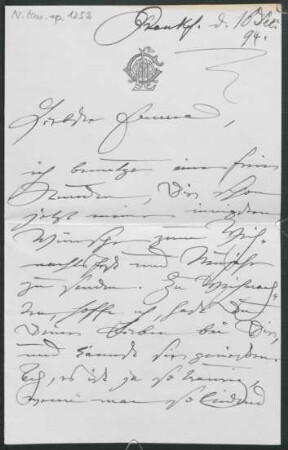 N. Mus. ep. 1252
Frankf. d. 10 Dec.
94.
Liebste Emma,
ich benutze eine freie
Stunde, Dir schon
jetzt meine innigsten
Wünsche zum Weih-
nachtsfest und Neujahr
zu senden. Zu Weihnach-
ten, hoffe ich, hast Du
Deine Lieben bei Dir,
und kannst sie
es ist ja so traurig
wenn man so leidend